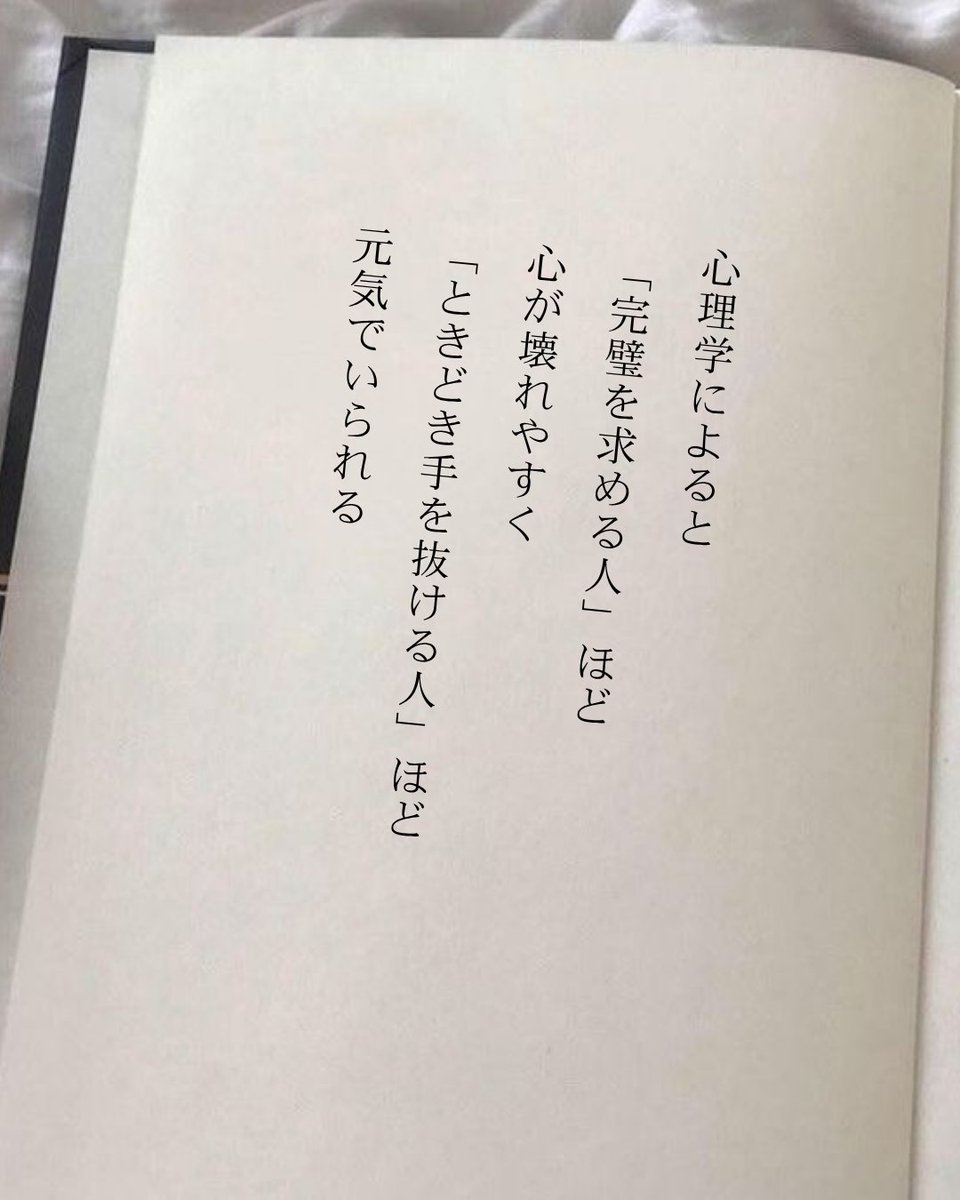 心理学によると
「完璧を求める人」ほど
心が壊れやすく
「ときどき手を抜ける人」ほど
元気でいられる